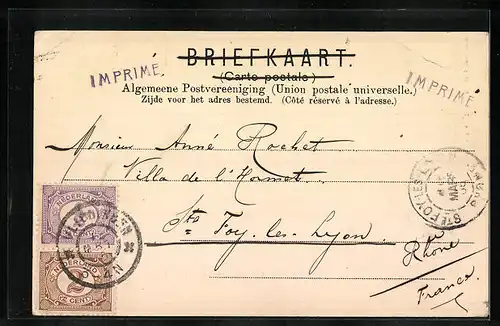 BRIEFKAART.
(Carte postale)
IMPRIME
IMPRIME
Algemeene Postvereeniging (Union postale universelle.)
Zijde voor het adres bestemd. (Côté réservé à l'adresse.)
Monsieur Anné Rochet
Villa de l'Hormet
Ste Foy-les-Lyon
Rhône
France
NEDERLAND
VLISSINGEN
NEDERLAND
2
CENT
STE FOY-LES-LYON